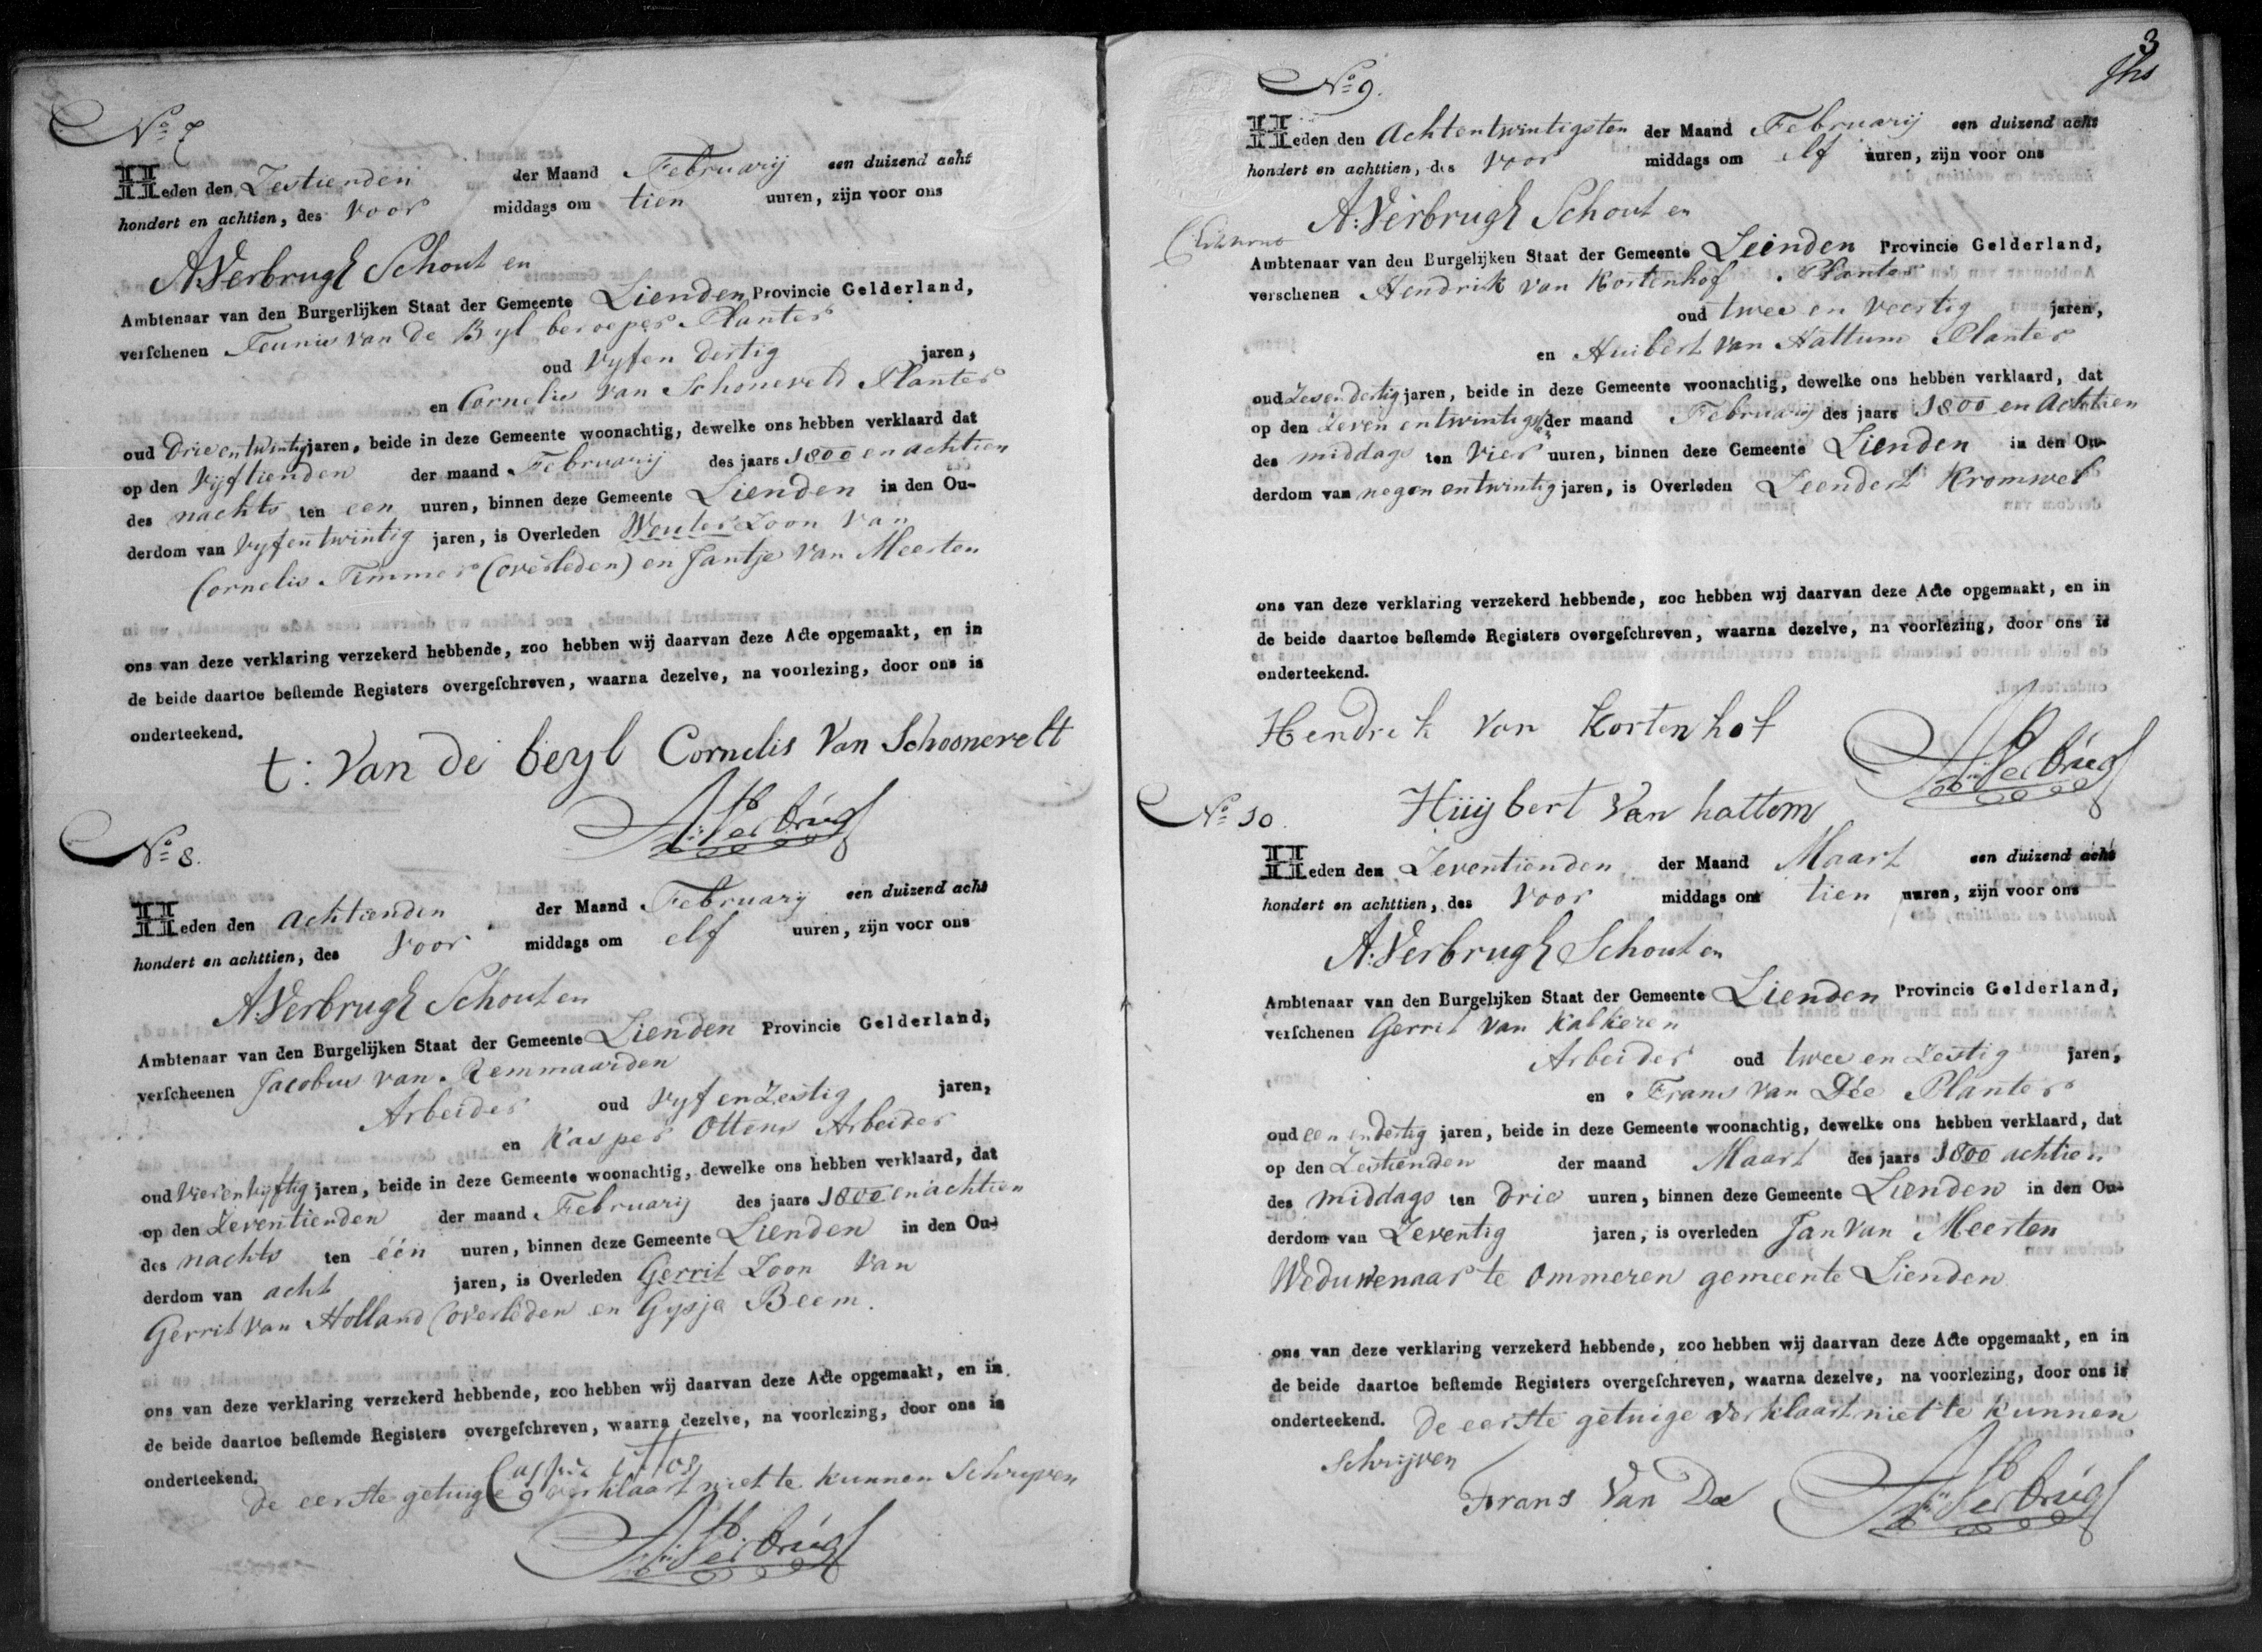 No 7
Heden den Zestienden der Maand Februarij een duizend acht
hondert en achttien, des voor middags om tien uuren, zijn voor ons
A. Verbrugh Schout en
Ambtenaar van den Burgerlijken Staat der Gemeente Lienden Provincie Gelderland,
verschenen Teunis van de Byl beroeper Planter
oud vyfen dertig jaren,
en Cornelis van Schoneveld Planter
oud Drie en twintig jaren, beide in deze Gemeente woonachtig, dewelke ons hebben verklaard dat
op den Vyftienden der maand Februarij des jaars 1800 en achtien
des nachts ten een uuren, binnen deze Gemeente Lienden in den Ou-
derdom van vyfentwintig jaren, is Overleden Wouter Zoon van
Cornelis Timmer (overleden) en Jantje van Meerten
ons van deze verklaring verzekerd hebbende, zoo hebben wij daarvan deze Acte opgemaakt, en in
de beide daartoe bestemde Registers overgeschreven, waarna dezelve, na voorlezing, door ons is
onderteekend.
t: Van de beyl Cornelis Van Schoonevelt
A: Verbrugh
No 8.
Heden den achtienden der Maand February een duizend acht
hondert en achttien, des voor middags om elf uuren, zijn voor ons
A. Verbrugh Schout en
Ambtenaar van den Burgelijken Staat der Gemeente Lienden Provincie Gelderland,
verscheenen Jacobus van Remmaarden
Arbeider oud vyf en Zestig jaren,
en Kasper Ottens Arbeider
oud Vierenvyftig jaren, beide in deze Gemeente woonachtig, dewelke ons hebben verklaard, dat
op den Zeventienden der maand Februarij des jaars 1800 en achtien
des nachts ten één uuren, binnen deze Gemeente Lienden in den Ou-
derdom van acht jaren, is Overleden Gerrit Zoon van
Gerrit van Holland (overleden en Gysje Beem.
ons van deze verklaring verzekerd hebbende, zoo hebben wij daarvan deze Acte opgemaakt, en in
de beide daartoe bestemde Registers overgeschreven, waarna dezelve, na voorlezing, door ons is
onderteekend.
de eerste getuige verklaart niet te kunnen Schryven
A: Verbrugh
3
No 9.
Heden den Achtentwintigsten der Maand Februarij een duizend acht
hondert en achttien, des voor middags om elf uuren, zijn voor ons
A: Verbrugh Schout en
Ambtenaar van den Burgelijken Staat der Gemeente Leinden Provincie Gelderland,
verschenen Hendrik van Kortenhof Planter
oud twee en veertig jaren,
en Huibert van Hattum Planter
oud Zesendertig jaren, beide in deze Gemeente woonachtig, dewelke ons hebben verklaard, dat
op den Zeven entwintigsten der maand Februarij des jaars 1800 en Achtien
des middags ten vier uuren, binnen deze Gemeente Lienden in den Ou-
derdom van negen entwintig jaren, is Overleden Leendert Kromwel
ons van deze verklaring verzekerd hebbende, zoo hebben wij daarvan deze Acte opgemaakt, en in
de beide daartoe bestemde Registers overgeschreven, waarna dezelve, na voorlezing, door ons is
onderteekend.
Hendrik van Kortenhof
A: Verbrugh
Huijbert Van hattom
No 10.
Heden den Zeventienden der Maand Maart een duizend acht
hondert en achttien, des voor middags om tien uuren, zijn voor ons
A: Verbrugh Schout en
Ambtenaar van den Burgelijken Staat der Gemeente Lienden Provincie Gelderland,
verschenen Gerrit van Kalkeren
Arbeider oud twee en Zestig jaren,
en Frans van Dée Planter
oud een endertig jaren, beide in deze Gemeente woonachtig, dewelke ons hebben verklaard, dat
op den Zestienden der maand Maart des jaars 1800 achtien
des middags ten drie uuren, binnen deze Gemeente Lienden in den Ou-
derdom van Zeventig jaren, is overleden Jan Van Meerten
Weduwenaar te Ommeren gemeente Lienden
ons van deze verklaring verzekerd hebbende, zoo hebben wij daarvan deze Acte opgemaakt, en in
de beide daartoe bestemde Registers overgeschreven, waarna dezelve, na voorlezing, door ons is
onderteekend. de eerste getuige verklaart niet te kunnen
Schrijven
Frans Van De
A: Verbrugh